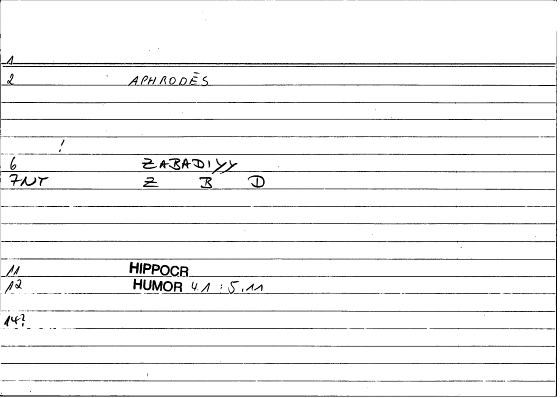 1
2 APHRODĒS
!
6 ZABADIYY
7NT Z B D
11 HIPPOCR
12 HUMOR 41 : 5,11
14?